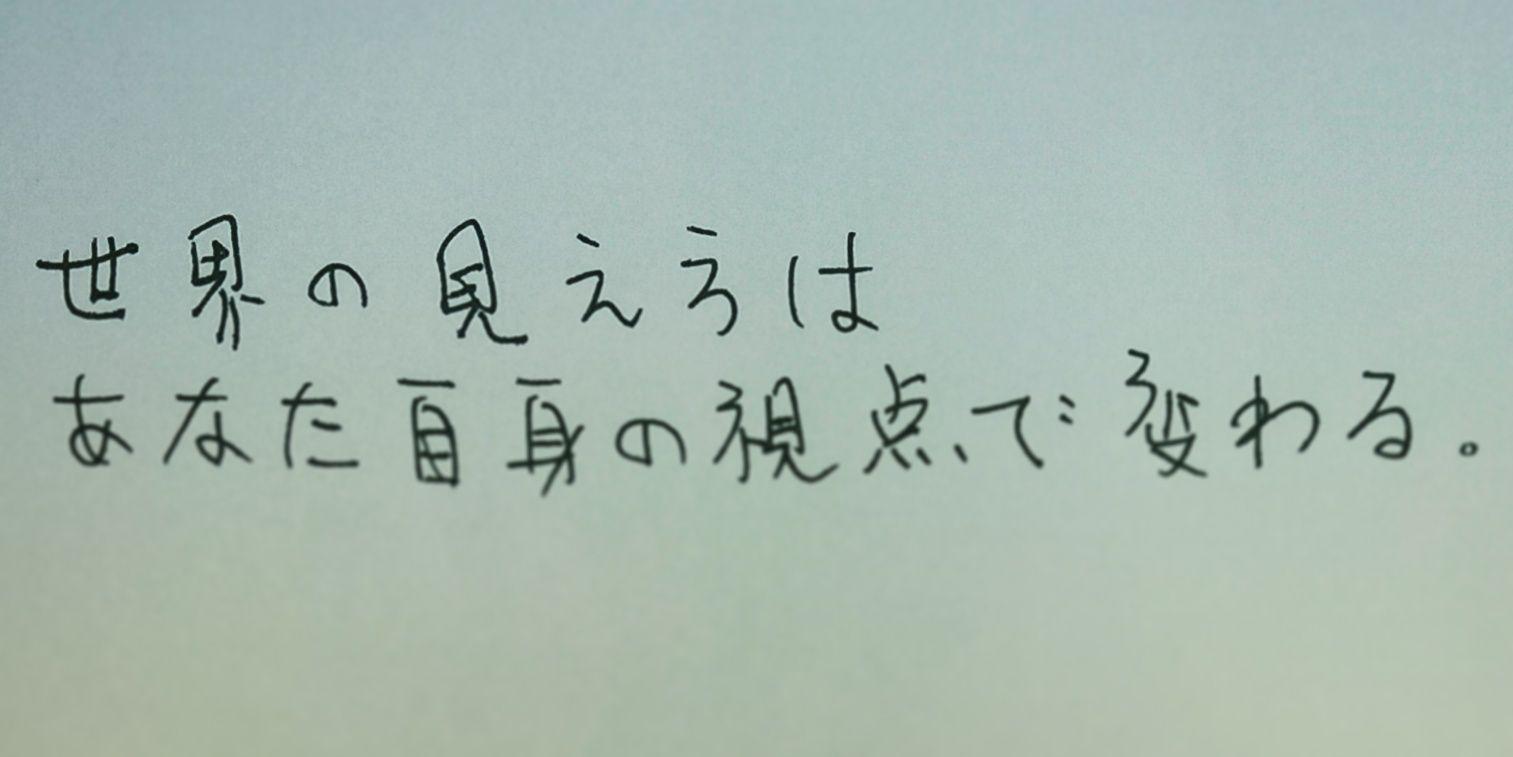 世界の見え方は
あなた自身の視点で変わる。